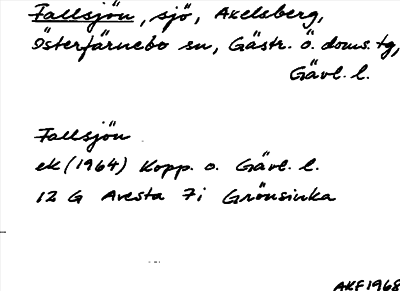 Fallsjön, sjö, Akelsberg,
Österfärnebo sn, Gästr. ö. doms. tg,
Gävl. l.
Fallsjön
ek (1964) Kopp. o. Gävl. l.
12 G Avesta 7i Grönsinka
AKF 1968